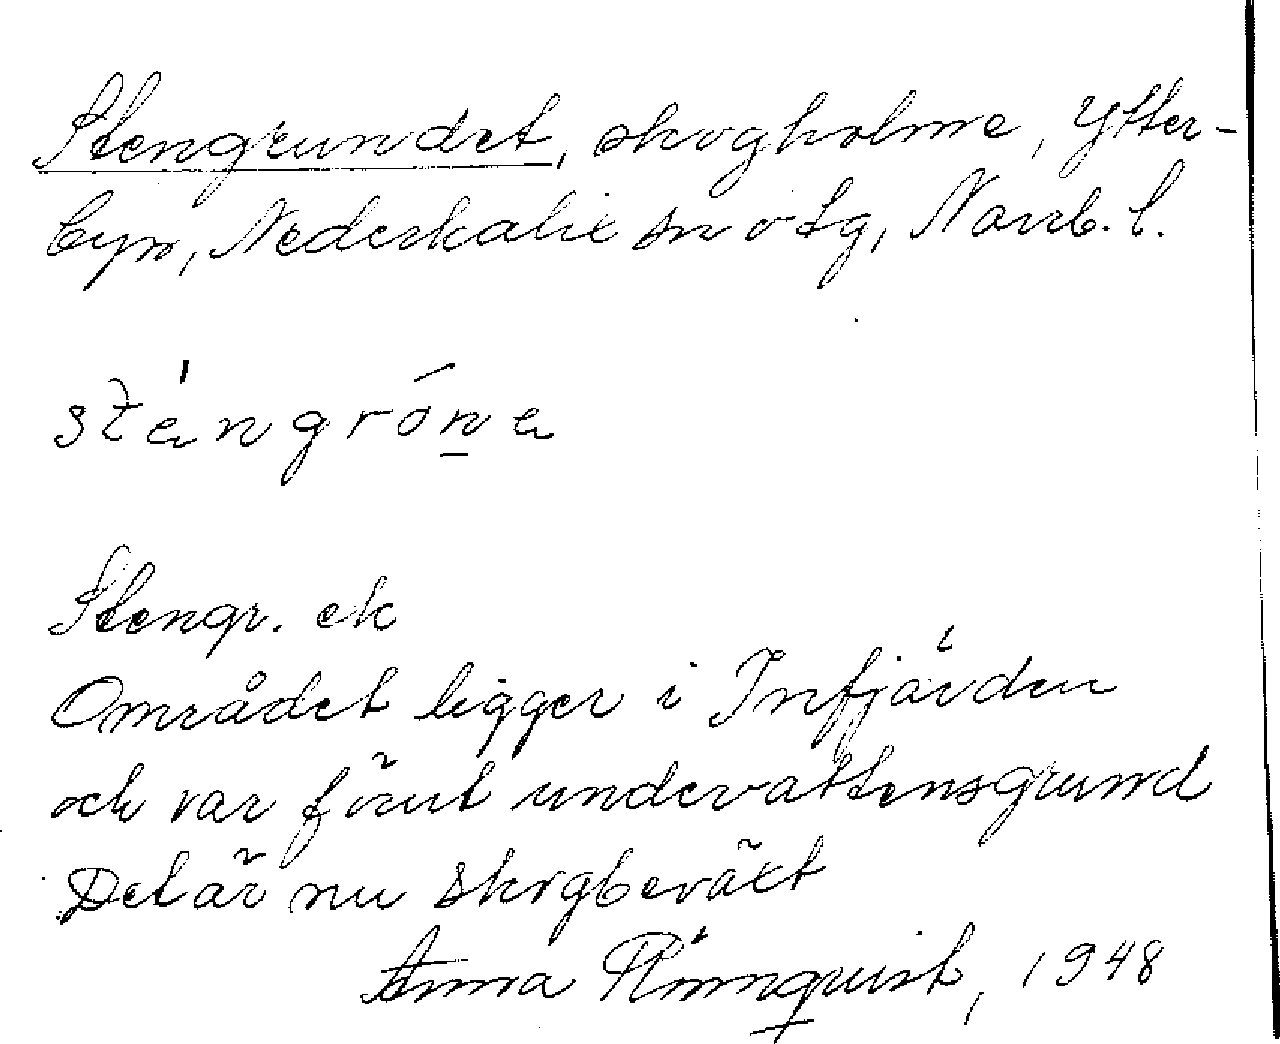 Stengrundet, skogholme, Ytter-
byn, Nederkalix sn o tg, Norrb. l.
sténgrón̲e
Stengr. ek
Området ligger i Infjärden
och var förut undervattensgrund
Det är nu skogbeväxt
Anna Rönnqvist, 1948